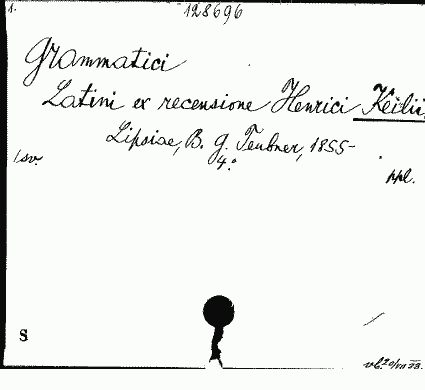 1.
128696
Grammatici
Latini ex recensione Henrici Keilii.
Lipsiae, B. G. Teubner, 1855-
4.°
1 sv.
ppl.
S